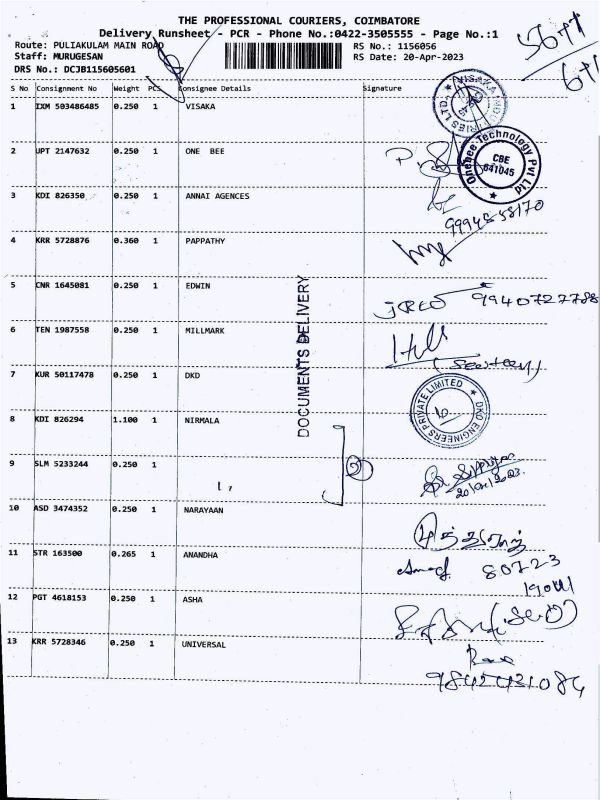 THE PROFESSIONAL COURIERS, COIMBATORE
Delivery Runsheet - PCR - Phone No.:0422-3505555 - Page No.:1
Route: PULIAKULAM MAIN ROAD
RS No.: 1156056
Staff: MURUGESAN
RS Date: 20-Apr-2023
DRS No.: DCJB115605601
S No Consignment No Weight PCS Consignee Details Signature
1 IXM 503486485 0.250 1 VISAKA
VISAKA INDUSTRIES LTD.
2 UPT 2147632 0.250 1 ONE BEE
Onebee Technology Pvt Ltd
CBE
641045
3 KDI 826350 0.250 1 ANNAI AGENCES
4 KRR 5728876 0.360 1 PAPPATHY
5 CNR 1645081 0.250 1 EDWIN
9940727788
6 TEN 1987558 0.250 1 MILLMARK
DOCUMENTS DELIVERY
7 KUR 50117478 0.250 1 DKD
DKD ENGINEERS PRIVATE LIMITED
8 KDI 826294 1.100 1 NIRMALA
9 SLM 5233244 0.250 1
20/04/2023
10 ASD 3474352 0.250 1 NARAYAAN
11 STR 163500 0.265 1 ANANDHA
80723
12 PGT 4618153 0.250 1 ASHA
13 KRR 5728346 0.250 1 UNIVERSAL